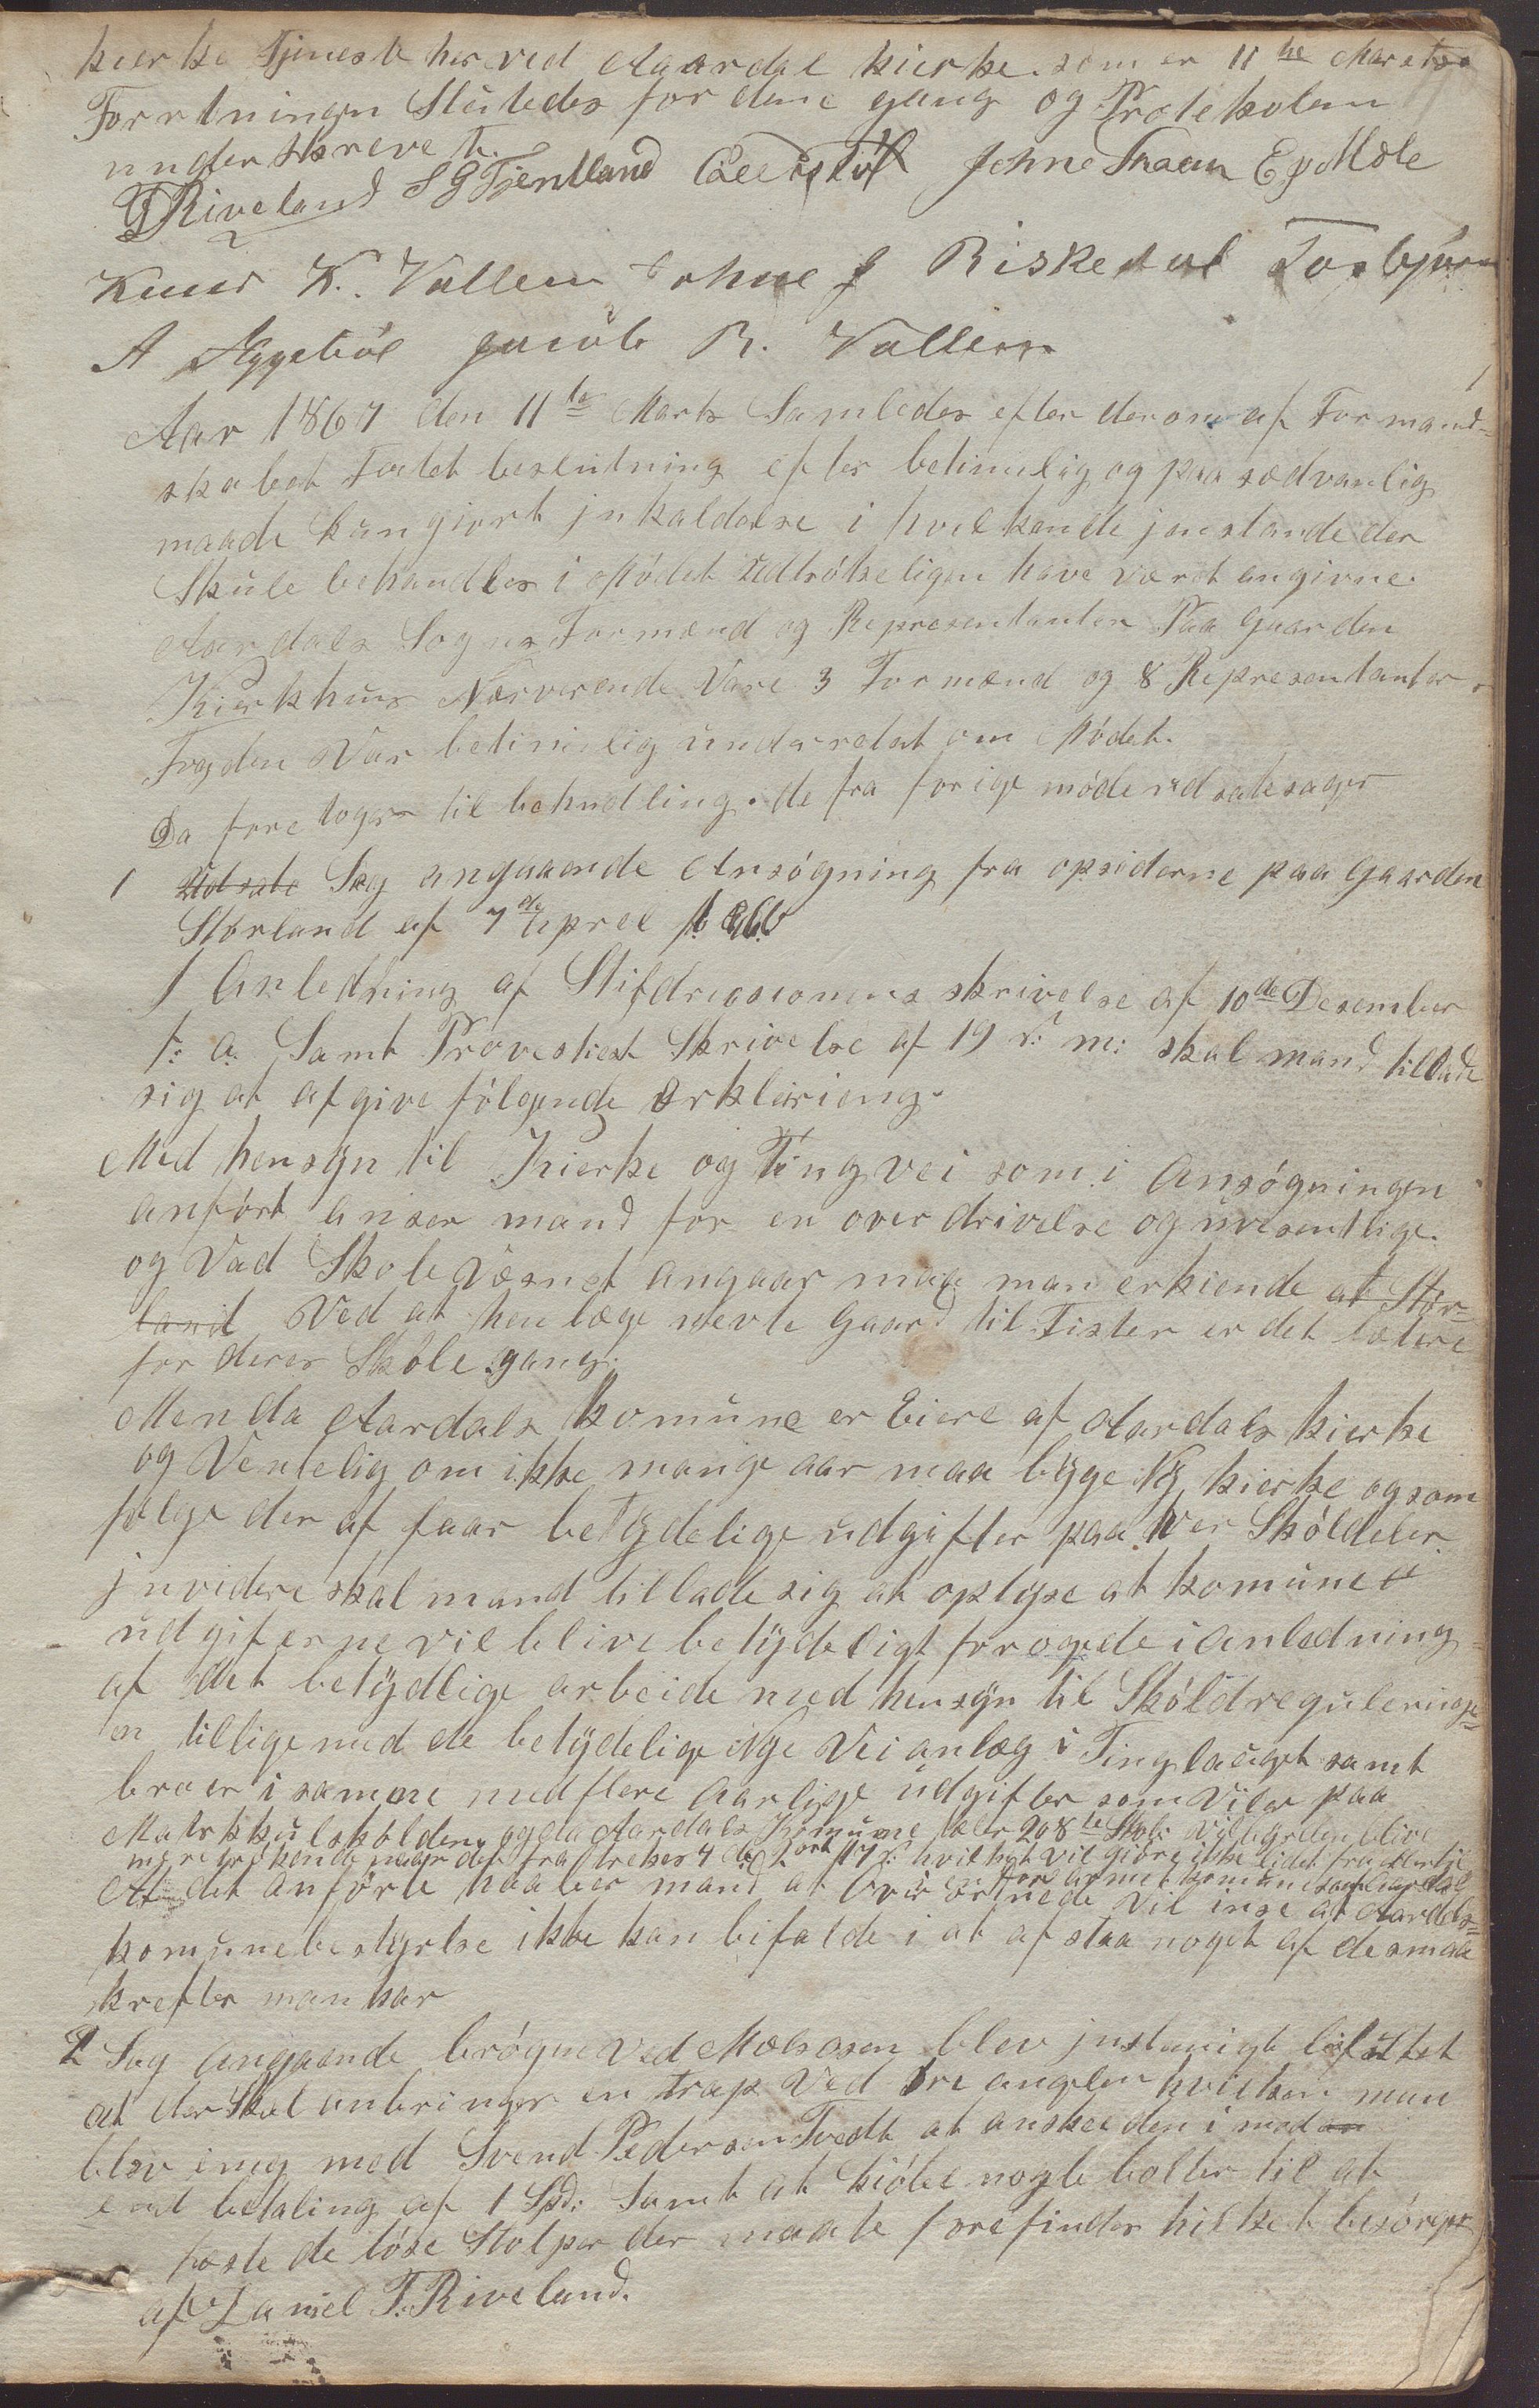 kierke Tjeneste her ved Aaardal kierke som er 11te Marets
Forretningen Slutedes for dene gang og Protekolen
underskrevet.
Riveland S G Tjentland Johne Traaen E g Mæle
Knud K. Vallem Johne J Riskedal Torbjørn
A Eggebøe Jacob R. Vallem
Aar 1867 den 11te Marts Samledes efter derom af Formand-
skabet Fatet beslutning efter betimelig og paa sædvanlig
maade kungjort jnkaldelse i hvilken de jenstande der
Skule behandles i Mødet Udtrøkeligen have været angivne
Aardals Sogns Formænd og Representanter Paa Gaarden
Kierkhus Nærverende Vare 3 Formænd og 8 Representanter.
Fogden Var betimelig underretet om Mødet.
Da foretoges til behndling. de fra forige møde udsate sager
1 Udsate Sag angaaende Ansøgning fra opsiderne paa Gaarden
Størland af 7de Aprel
I Anledning af Stifdreccionens skrivelse af 10de Desember
f: a. Samt Provestiest Skrivelse af 19 d: m: skal mand tillade
sig at afgive følgende Erklærieng.
Med hensyn til Kierke og Tingvei som i Ansøgningen
anført anser mand for en overdrivelse og uvesentlige.
og Vad Skolevæsnet angaar maa man erkiende at Stør-
land Ved at henlæge nevte Gaard til Fister er det lætere
for deres Skole gang.
Men da Aardals komune er Eiere af Aardals kierke
og Ventelig om ikke mange aar maa bygge Ny kierke og som
følge der af faar betydelige udgifter paa hver Skøldeler.
jnvidere skal mand tillade sig at oplyse at komunet
udgiferne vil blive betydeligt forøgede i anledning
af det betydlige arbeide med hensyn til Skøldreguleringe-
en tillige med de betydelige Nye Veianlæg i Tinglauget samt
broer i samme med flere Aarlige udgifter som Viler paa
Matrikkulskølden, og da Aardals Komune 208 Skol: vil byrden blive
mere trøkende naar der fratrekes 4 d: Ort 17 s: hvilket vil giøre ikke lidet fra eller til
for armt komune som Aardal
At det anførte haaber mand at Øvrørinede Vil inse at Aardals-
komunebestyrlse ikke kan bifalde i at afstaa noget af de smaa
krefter man har
2 Sag Angaaende brøgen Ved Mælsosen blev jnstemigt besluttet
at der Skal anbringes en trap Ved tre angelen hvilken man
blev enig med Svend Pedersen Tvedt at anskee den i mod en
end betaling af 1 Spd: Samt at kiøbe nogle bolter til at
fæste de løse Stolper der maate forefindes hilket besørges
af Daniel T. Riveland.